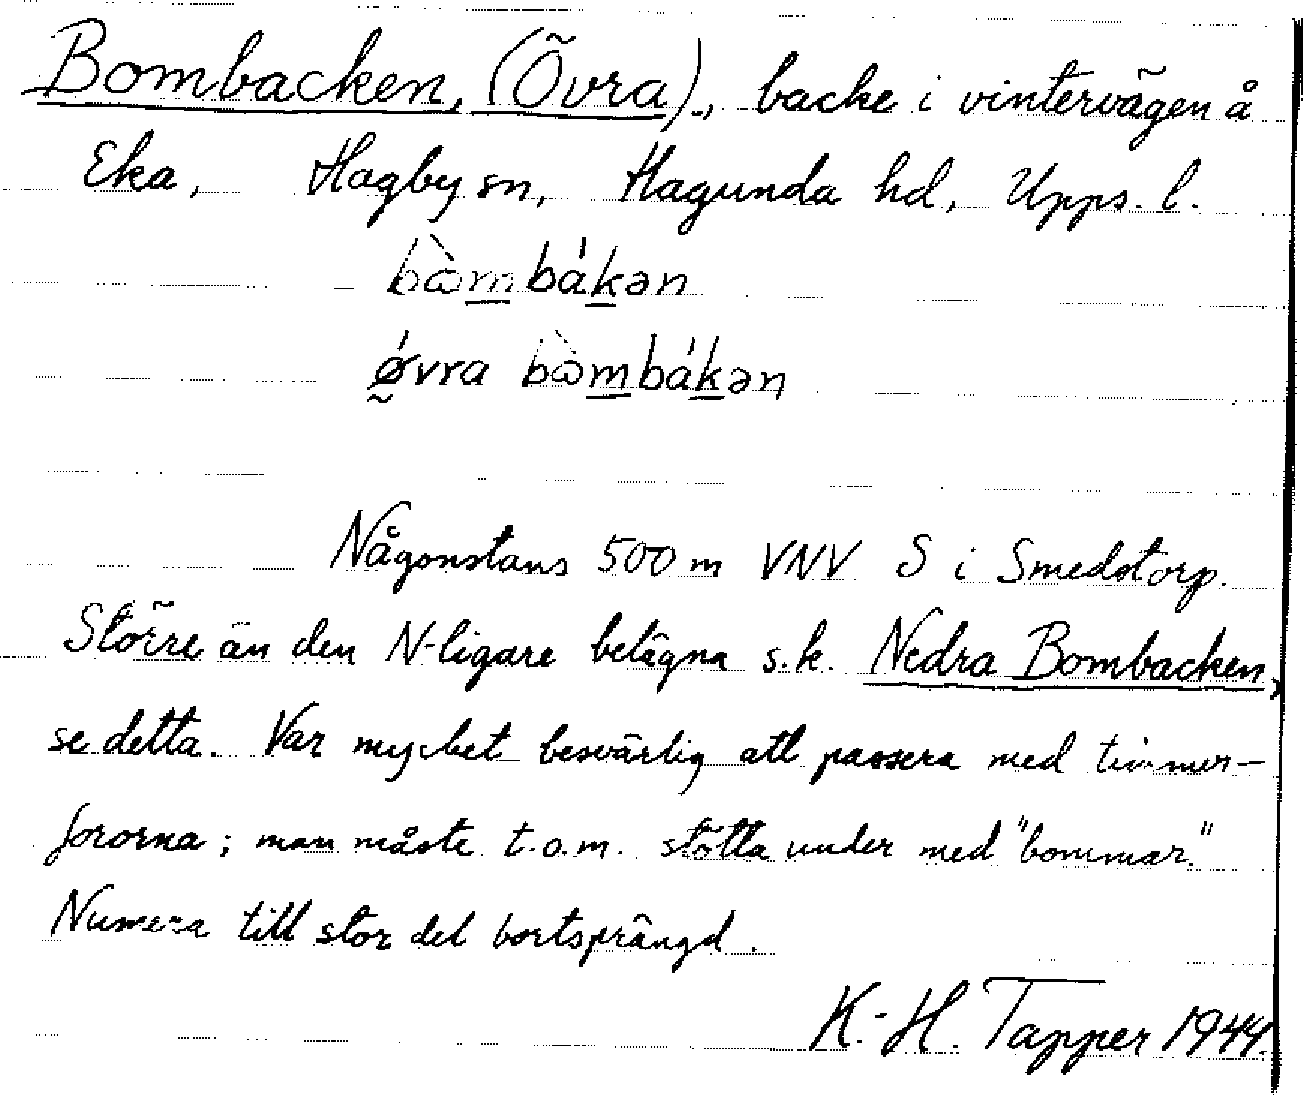 Bombacken, (Övra)., backe i vintervägen å
Eka, Hagby sn, Hagunda hd, Upps. l.
bὼmbákən
ǿvra bὼmbákən
Någonstans 500 m VNV S i Smedstorp.
Större än den N-ligare belägna s.k. Nedra Bombacken,
se detta. Var mycket besvärlig att passera med timmer-
fororna; man måste t.o.m. stötta under med "bommar."
Numera till stor del bortsprängd.
K.-H. Tapper 1944.